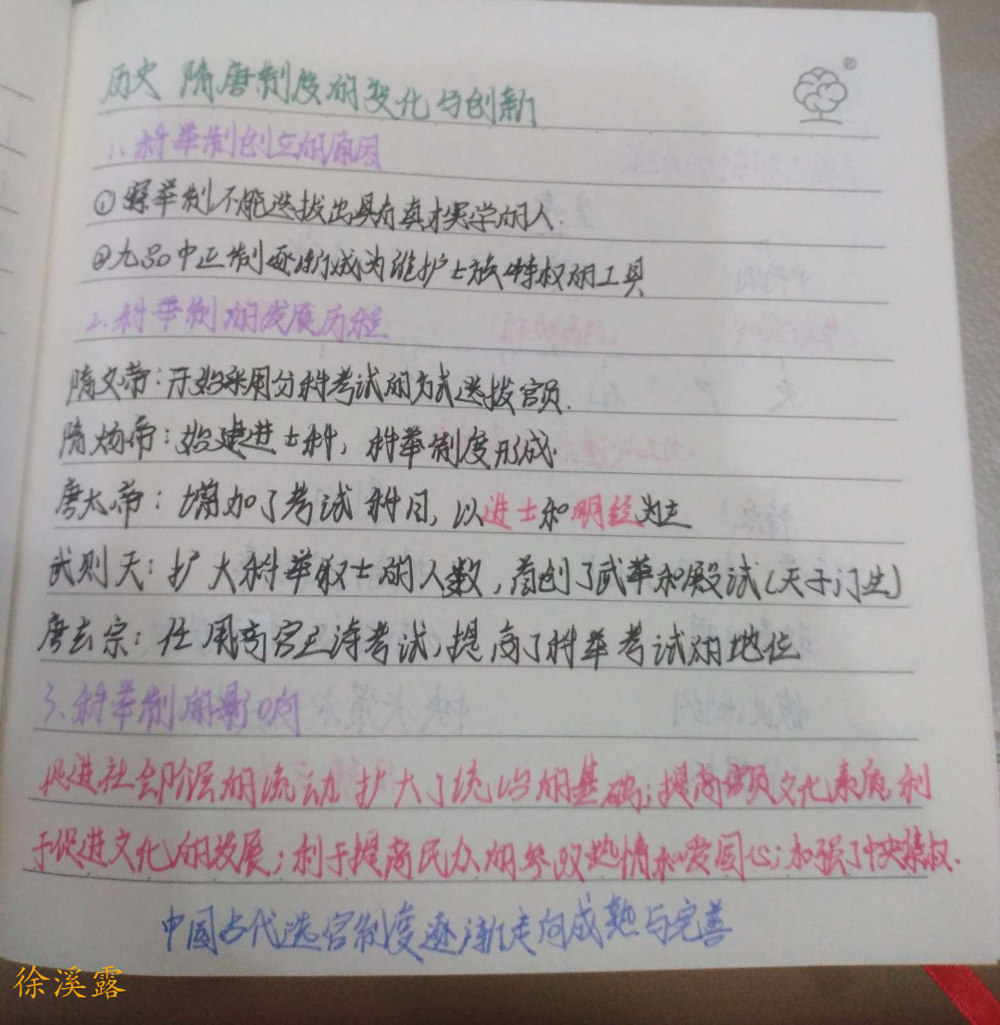 历史 隋唐制度的变化与创新
®
1、科举制创立的原因
①察举制不能选拔出具有真才实学的人.
②九品中正制逐渐成为维护士族特权的工具
2、科举制的发展历程
隋文帝:开始采用分科考试的方式选拔官员.
隋炀帝:始建进士科,科举制度形成.
唐太帝:增加了考试科目,以进士和明经为主
武则天:扩大科举取士的人数,首创了武举和殿试(天子门生)
唐玄宗:任用高官主持考试,提高了科举考试的地位
3、科举制的影响
促进社会阶层的流动 扩大了统治的基础;提高官员文化素质,利
于促进文化的发展;利于提高民众的参政热情和爱国心;加强了中央集权.
中国古代选官制度逐渐走向成熟与完善
徐溪露